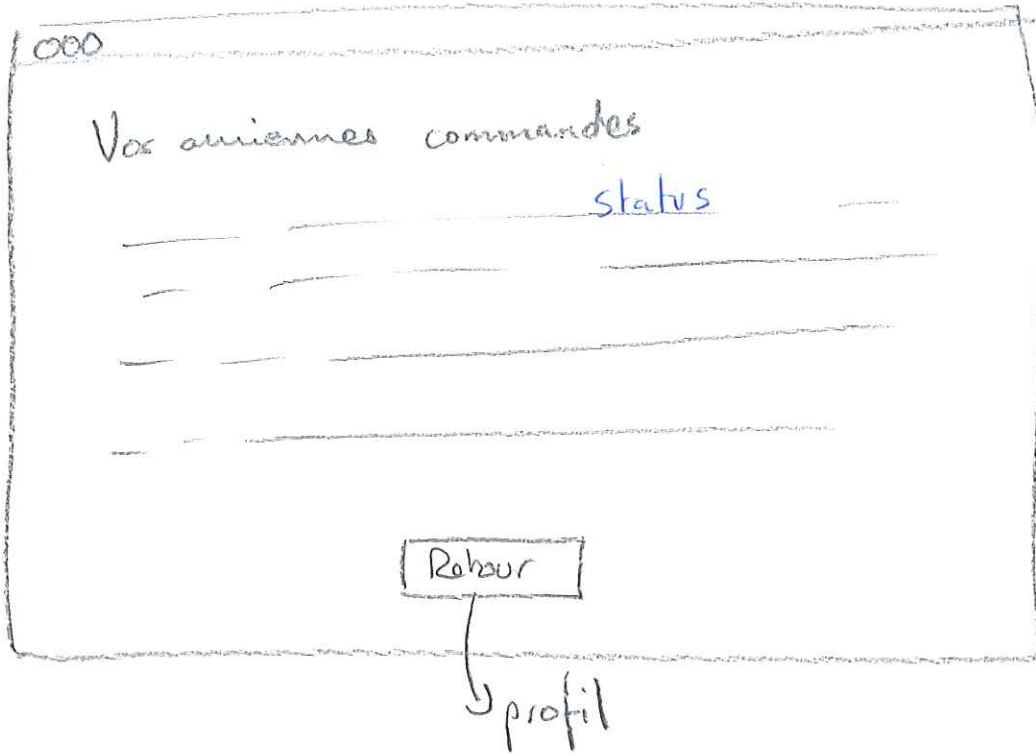 Vos anciennes commandes
status
Retour
profil